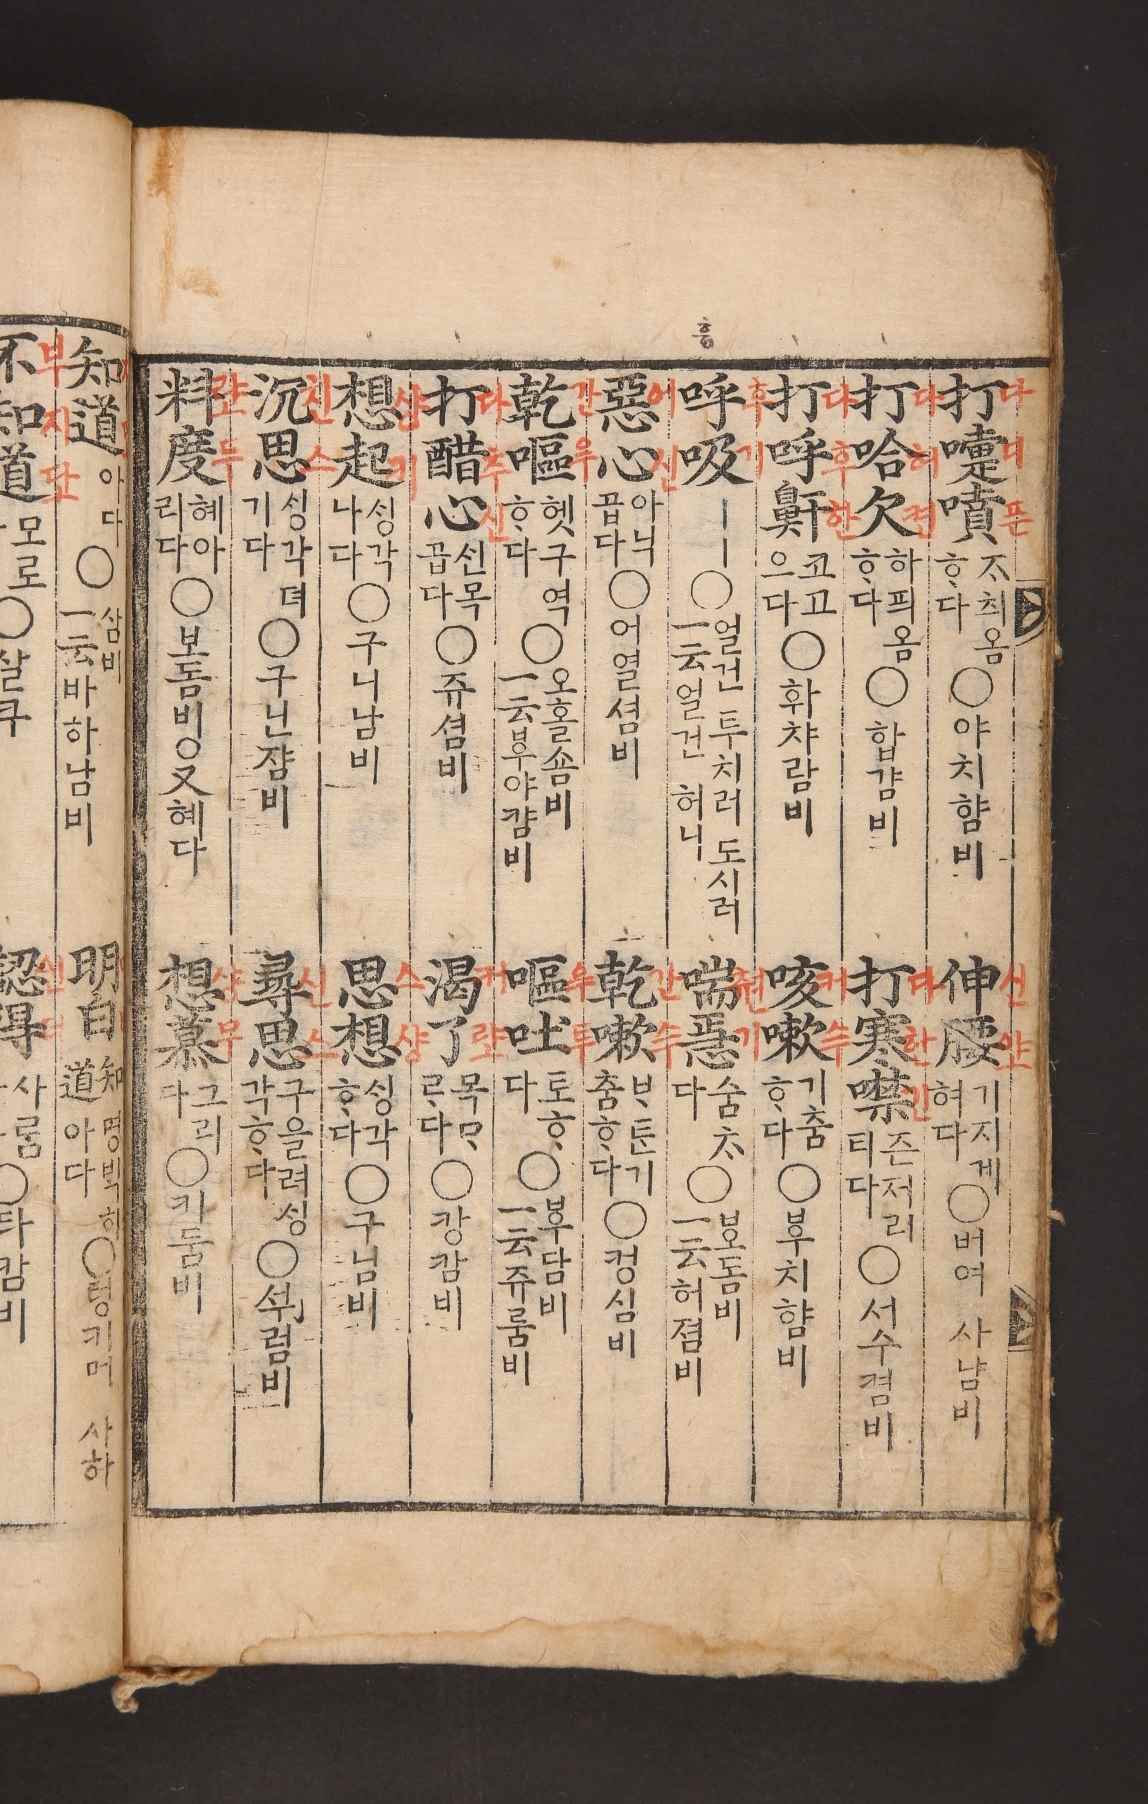 흥
打嚔噴 ᄌᆞ최옴ᄒᆞ다 〇야치햠비
다 디 픈
伸腰 기지게혀다 〇버여 사남비
신 얀
打哈欠 하픠옴ᄒᆞ다 〇합걈비
다 허 켠
打寒噤 즌저리티다 〇서수켬비
다 한 긴
打呼鼾 코고으다 〇화챠람비
다 후 한
咳嗽 기춤ᄒᆞ다 〇부치햠비
커 수
呼吸 ㅣㅣ 〇얼건 투치러 도시러 一云얼건 허니
후 기
喘急 숨ᄎᆞ다 〇보돔비 一云허졈비
쳔 기
惡心 아닉곱다 〇어열셤비
어 신
乾嗽 ᄇᆞᄐᆞᆫ기춤ᄒᆞ다 〇컹심비
간 수
乾嘔 헷구역ᄒᆞ다 〇오홀숌비 一云부야캼비
간 우
嘔吐 토ᄒᆞ다 〇부담비 一云쥬룸비
우 투
打醋心 신목곱다 〇쥬셤비
다 추 신
渴了 목ᄆᆞᄅᆞ다 〇캉캄비
커 랴
想起 싱각나다 〇구니남비
샹 키
思想 싱각ᄒᆞ다 〇구님비
스 샹
沉思 싱각뎌기다 〇구닌쟘비
친 스
尋思 구을려싱각ᄒᆞ다 〇서우럼비
신 스
料度 혜아리다 〇보돔비〇又혜다
랸 두
想慕 그리다 〇키둠비
샹 무
知道 아다 〇삼비 一云바하남비
明白 知道 명빅히아다 〇렁키머 사하
不知道 모로 〇살쿠
부 지 단
認得 사룸 〇타캄비